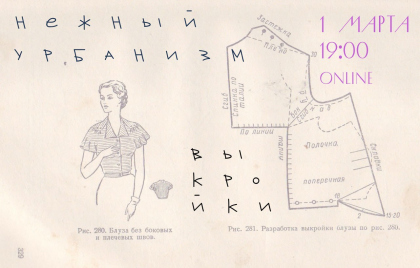 нежный
урбанизм
1 МАРТА
19:00
ONLINE
вы
кро
йки
Застежка
Сгиб
Спинка по
талии
По линии
линии
Полочка
поперечная
Рис. 280. Блуза без боковых
и плечевых швов.
Рис. 281. Разработка выкройки блузы по рис. 280.
309